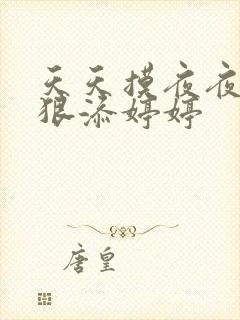 天天摸夜夜
狠添婷婷
唐皇